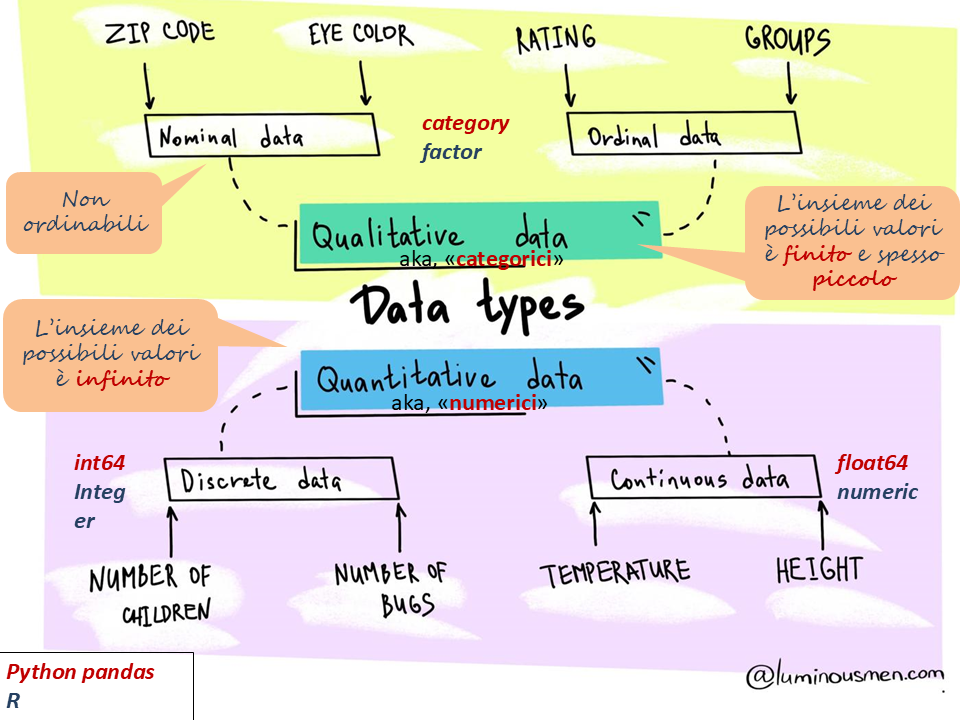 ZIP CODE
EYE COLOR
RATING
GROUPS
Nominal data
category
factor
Ordinal data
Non
ordinabili
Qualitative data
aka, «categorici»
L'insieme dei
possibili valori
è finito e spesso
piccolo
Data types
L'insieme dei
possibili valori
è infinito
Quantitative data
aka, «numerici»
int64
Integ
er
Discrete data
Continuous data
float64
numeric
NUMBER OF
CHILDREN
NUMBER OF
BUGS
TEMPERATURE
HEIGHT
Python pandas
R
@luminousmen.com